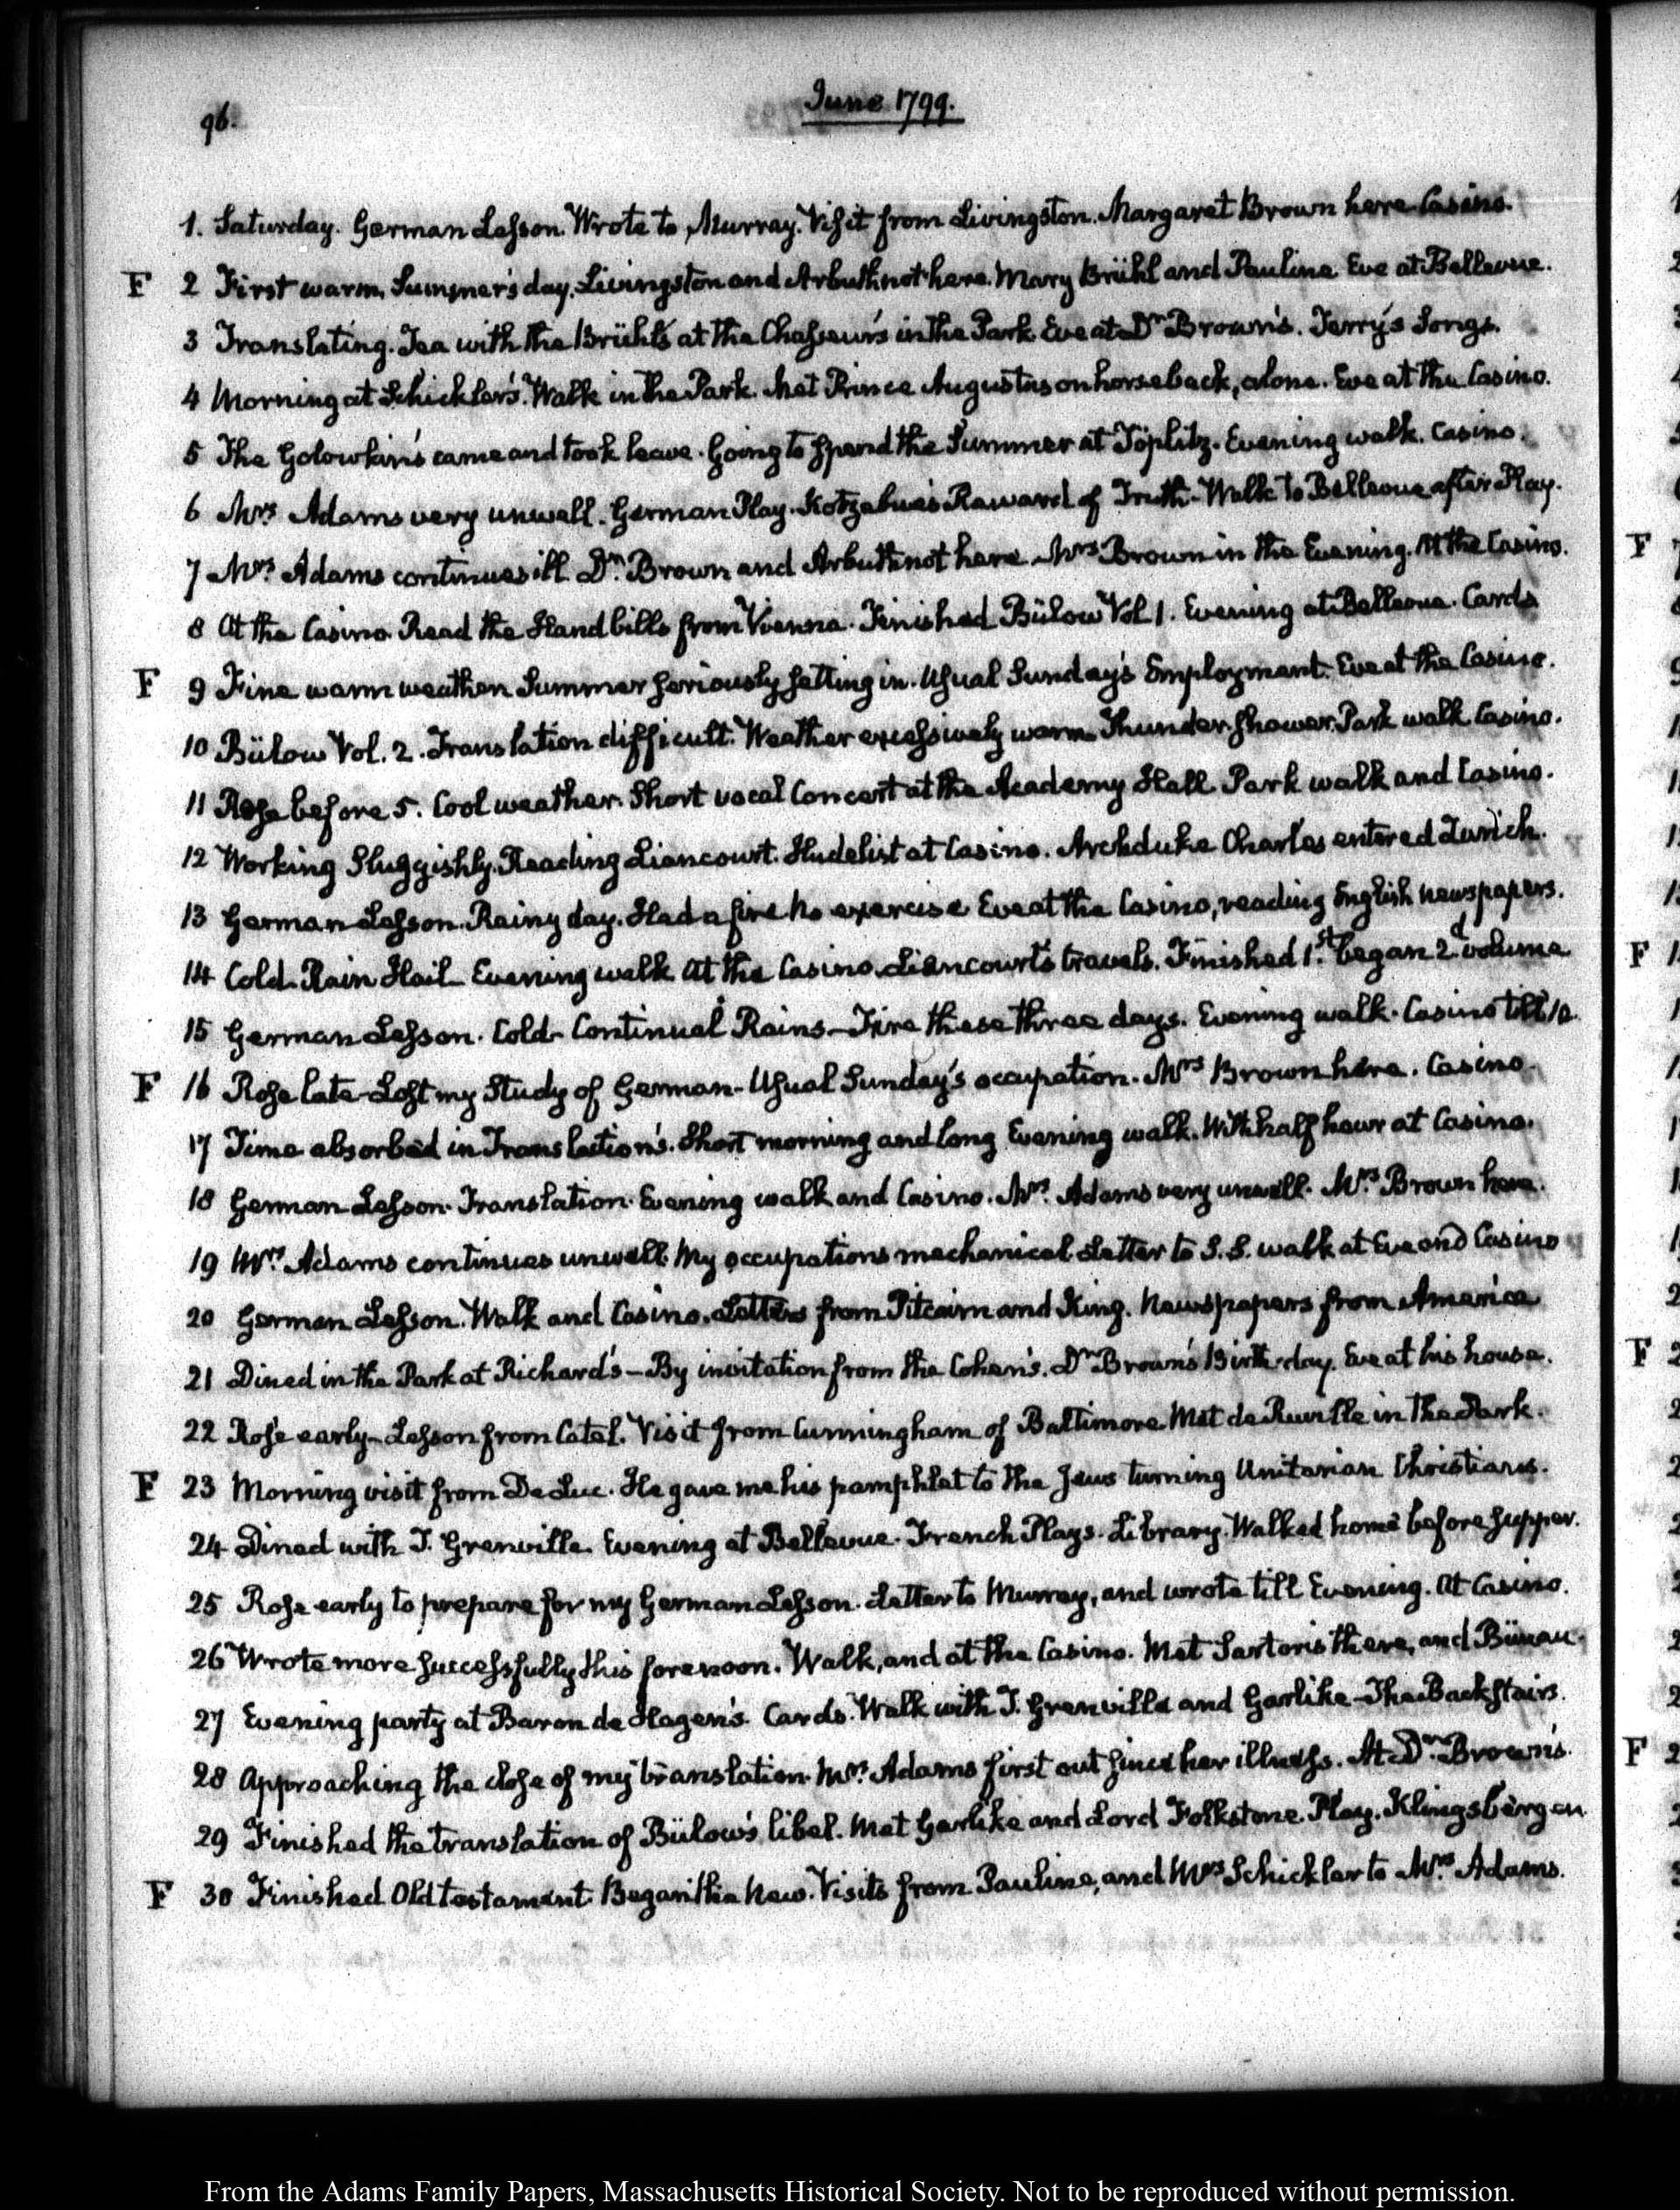 96.
June 1799.
1. Saturday. German Lesson. Wrote to Murray. Visit from Livingston. Margaret Brown here Casino.
F 2 First warm Summer's day. Livingston and Arbuthnot here. Mary Brühl and Pauline Eve at Bellevue.
3 Translating. Tea with the Brühl's at the Chasseur's in the Park Eve at Dr Brown's. Terry's Songs.
4 Morning at Schickler's. Walk in the Park. Met Prince Augustus on horseback, alone. Eve at the Casino.
5 The Golowkin's came and took leave. Going to spend the Summer at Töplitz. Evening walk. Casino.
6 Mrs Adams very unwell. German Play. Kotzebue's Reward of Truth. Walk to Bellevue after Play.
7 Mrs Adams continues ill. Dr. Brown and Arbuthnot here. Mrs Brown in the Evening. At the Casino.
8 At the Casino. Read the Handbills from Vienna. Finished Bülow Vol 1. Evening at Bellevue. Cards
F 9 Fine warm weather Summer seriously setting in. Usual Sunday's Employment. Eve at the Casino.
10 Bülow Vol. 2. Translation difficult. Weather excessively warm. Thunder shower. Park walk Casino.
11 Rose before 5. Cool weather. Short vocal Concert at the Academy Hall. Park walk and Casino.
12 Working Sluggishly. Reading Liancourt. Hudelist at Casino. Archduke Charles entered Zurich.
13 German Lesson. Rainy day. Had a fire no exercise Eve at the Casino, reading English newspapers.
14 Cold. Rain Hail. Evening walk At the Casino. Liancourt's travels. Finished 1st began 2d volume
15 German Lesson. Cold. Continual Rains—Fire these three days. Evening walk. Casino till 10.
F 16 Rose late—Lost my Study of German—Usual Sunday's occupation. Mrs Brown here. Casino.
17 Time absorbed in Translation's. Short morning and long Evening walk. With half hour at Casino.
18 German Lesson. Translation. Evening walk and Casino. Mrs. Adams very unwell. Mrs Brown here.
19 Mrs. Adams continues unwell. My occupations mechanical. Letter to S.S. walk at Eve and Casino
20 German Lesson. Walk and Casino. Letters from Pitcairn and King. Newspapers from America
21 Dined in the Park at Richard's—By invitation from the Cohen's. Dr Brown's Birth-day. Eve at his house.
22 Rose early—Lesson from Catel. Visit from Cunningham of Baltimore. Met de Ruville in the Park.
F 23 Morning visit from De Luc. He gave me his pamphlet to the Jews turning Unitarian Christians.
24 Dined with T. Grenville. Evening at Bellevue. French Plays. Library. Walked home before supper.
25 Rose early to prepare for my German Lesson. Letter to Murray, and wrote till Evening. At Casino.
26 Wrote more successfully this forenoon. Walk, and at the Casino. Met Sartoris there, and Bünau.
27 Evening party at Baron de Hagen's. Cards. Walk with T. Grenville and Garlike—The Back stairs.
28 Approaching the close of my translation. Mrs. Adams first out since her illness. At Dr. Brown's.
29 Finished the translation of Bülow's libel. Met Garlike and Lord Folkstone. Play. Klingsbergen
F 30 Finished Old testament. Began the New. Visits from Pauline, and Mrs Schickler to Mrs Adams.
From the Adams Family Papers, Massachusetts Historical Society. Not to be reproduced without permission.